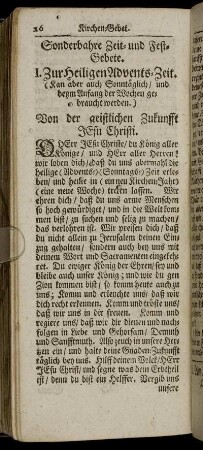 26 Kirchen-Gebet.
Sonderbahre Zeit- und Fest-
Gebete.
I. Zur Heiligen Advents-Zeit.
(Kan aber auch Sonntäglich/ und
beym Anfang der Wochen ge-
braucht werden.)
Von der geistlichen Zukunfft
JEsu Christi.
HErr JEsu Christe/ du König aller
Könige/ und HErr aller Herren!
wir loben dich/ daß du uns abermahl die
heilige (Advents-) (Sonntags-) Zeit erle-
ben/ und heute in (ein neu Kirchen-Jahr)
(eine neue Woche) treten lassen. Wir
ehren dich/ daß du uns arme Menschen
so hoch gewürdiget/ und in die Welt kom-
men bist/ zu suchen und selig zu machen/
das verlohren ist. Wir preisen dich/ daß
du nicht allein zu Jerusalem deinen Ein-
zug gehalten/ sondern auch bey uns mit
deinem Wort und Sacramenten eingekeh-
ret. Du ewiger König der Ehren/ sey und
bleibe auch unser König; und wie du gen
Zion kommen bist/ so komm heute auch zu
uns; Komm und erleuchte uns/ daß wir
dich recht erkennen. Komm und tröste uns/
daß wir uns in dir freuen. Komm und
regiere uns/ daß wir dir dienen und nach-
folgen in Liebe und Gehorsam/ Demuth
und Sanfftmuth. Also zeuch in unsere Her-
tzen ein/ und halte deine Gnaden-Zukunfft
täglich bey uns. Hilff deinem Volck/ HErr
JEsu Christ/ und segne was dein Erbtheil
ist/ denn du bist ein Helffer. Vergib uns
unsere